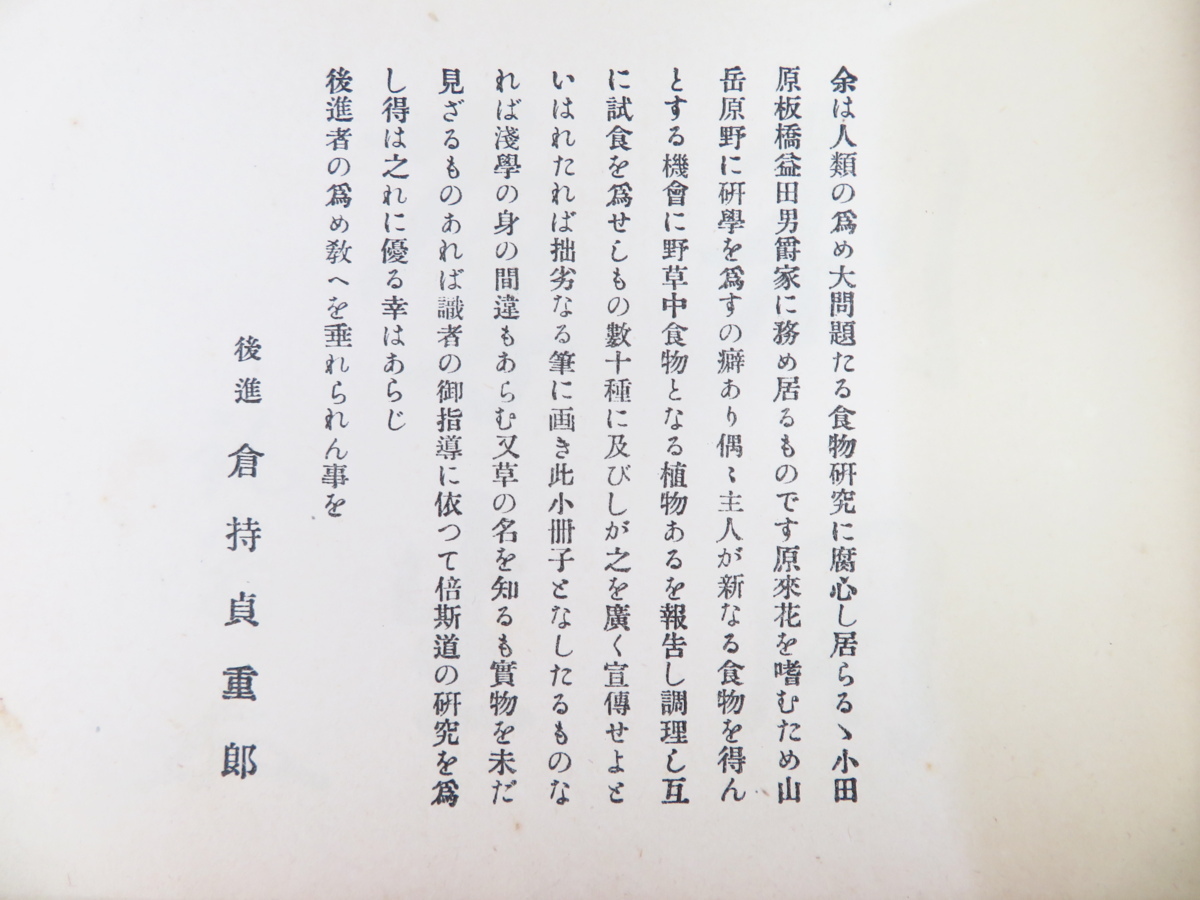 余は人類の爲め大問題たる食物硏究に腐心し居らるゝ小田
原板橋益田男爵家に務め居るものです原來花を嗜むため山
岳原野に硏學を爲すの癖あり偶〻主人が新なる食物を得ん
とする機會に野草中食物となる植物あるを報吿し調理し互
に試食を爲せしもの數十種に及びしが之を廣く宣傳せよと
いはれたれば拙劣なる筆に画き此小冊子となしたるものな
れば淺學の身の間違もあらむ又草の名を知るも實物を未だ
見ざるものあれば識者の御指導に依つて倍斯道の硏究を爲
し得は之れに優る幸はあらじ
後進者の爲め敎へを垂れられん事を
後進 倉持貞重郎